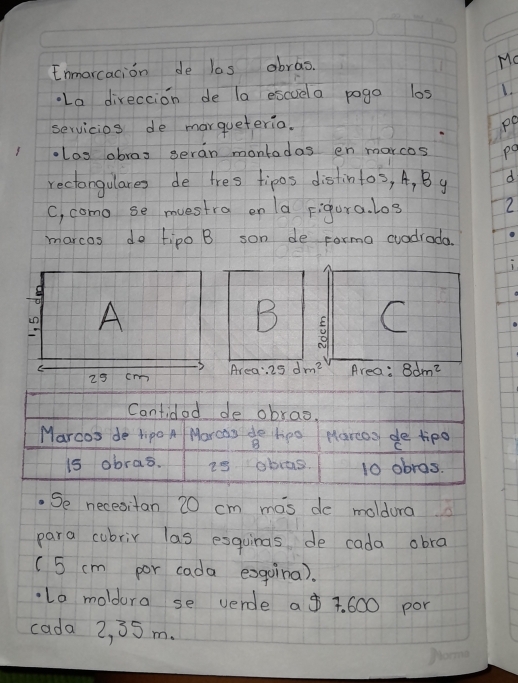 Enmarcación de las obras.
•La dirección de la escuela paga los
servicios de marquetería.
•Las obras serán montadas en marcos
rectangulares de tres tipos distintos, A, B y
C, como se muestra en la figura. Los
marcos de tipo B son de forma cuadrada.
1,5 dm
A
B
20cm
C
25 cm
Area: 25 dm²
Area: 8dm²
Cantidad de obras.
Marcos de tipo A
Marcos de tipo B
Marcos de tipo C
15 obras.
25 obras
10 obras.
•Se necesitan 20 cm más de moldura
para cubrir las esquinas de cada obra
(5 cm por cada esquina).
•La moldura se vende a $ 7.600 por
cada 2,35 m.
Norma
Mo
1.
po
pa
d
2
•
i